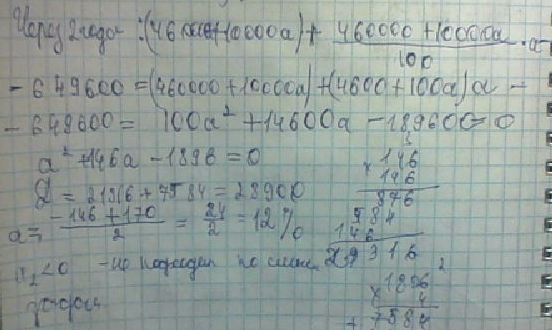 Через 2 года :(460000+10000a) + 460000 + 10000a / 100 · a
- 649600 = (460000 + 10000a) + (4600 + 100a) a -
- 649600 = 100a² + 14600a - 189600 = 0
a² + 146a - 1896 = 0
D = 21316 + 7584 = 28900
a = -146 + 170 / 2 = 24 / 2 = 12 %
a₂ < 0 - не подходит по
× 146
146
876
584
146
21316
× 1896
4
7584